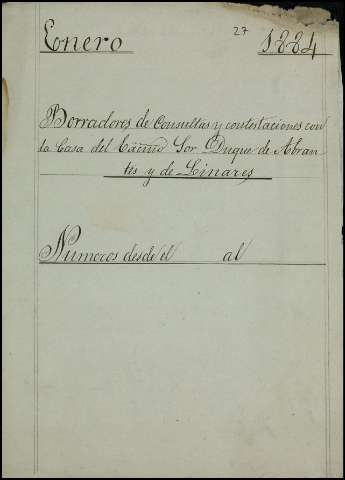 27
Enero 1884
Borradores de Consultas y contestaciones con
la Casa del Exmo Sor Duque de Abran-
tes y de Linares
Numeros desde el al